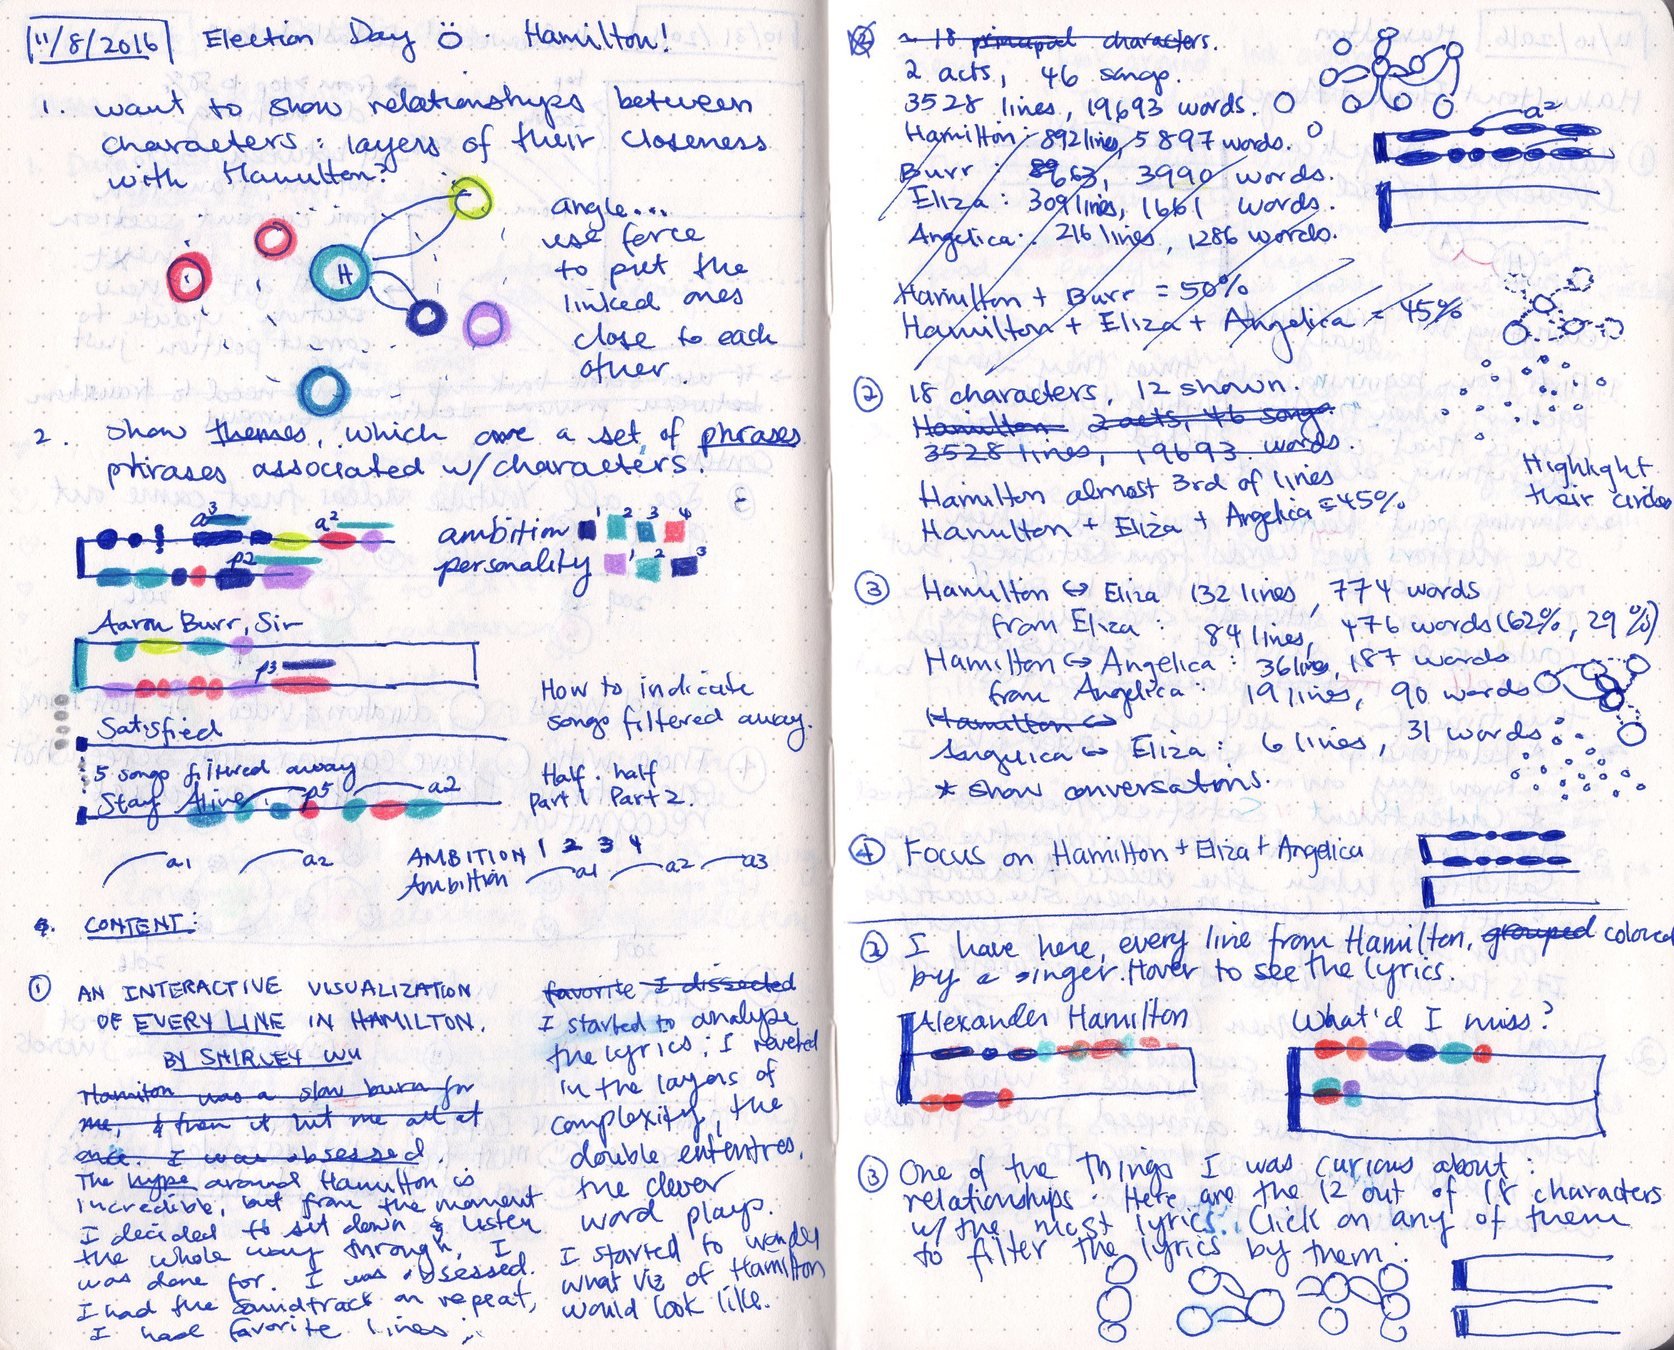 11/8/2016 Election Day Ö. Hamilton!
1. want to show relationships between
characters: layers of their closeness
with Hamilton?
H
angle...
use force
to put the
linked ones
close to each
other.
2. Show themes, which are a set of phrases
phrases associated w/characters.
a3 a2
p2
ambition 1 2 3 4
personality 1 2 3
Aaron Burr, Sir
p3
Satisfied
How to indicate
songs filtered away.
5 songs filtered away
Stay Alive p5 a2
Half . half
Part 1 Part 2.
a1 a2
AMBITION 1 2 3 4
Ambition a1 a2 a3
CONTENT:
① AN INTERACTIVE VISUALIZATION
OF EVERY LINE IN HAMILTON.
BY SHIRLEY WU
Hamilton was a slow burn for
me, & then it hit me all at
once. I was obsessed
The hype around Hamilton is
incredible, but from the moment
I decided to sit down & listen
the whole way through, I
was done for. I was obsessed.
I had the soundtrack on repeat,
I had favorite lines;
favorite I dissected
I started to analyze
the lyrics; I reveled
in the layers of
complexity, the
double ententres,
the clever
word plays.
I started to wonder
what viz of Hamilton
would look like.
~ 18 principal characters.
2 acts, 46 songs.
3528 lines, 19693 words.
Hamilton: 892 lines, 5897 words.
Burr: 663, 3990 words.
Eliza: 309 lines, 1661 words.
Angelica: 216 lines, 1286 words.
Hamilton + Burr = 50%
Hamilton + Eliza + Angelica = 45%
a2
② 18 characters, 12 shown.
Hamilton 2 acts, 46 songs.
3528 lines, 19693 words.
Hamilton almost 3rd of lines
Hamilton + Eliza + Angelica = 45%
Highlight
their circles
③ Hamilton ↔ Eliza 132 lines, 774 words
from Eliza: 84 lines, 476 words (62%, 29%)
Hamilton ↔ Angelica: 36 lines, 187 words
from Angelica: 19 lines, 90 words
Hamilton ↔
Angelica ↔ Eliza: 6 lines, 31 words
* show conversations.
④ Focus on Hamilton + Eliza + Angelica
② I have here, every line from Hamilton, grouped colored
by singer. Hover to see the lyrics.
Alexander Hamilton What'd I miss?
③ One of the things I was curious about:
relationships. Here are the 12 out of 18 characters
w/the most lyrics. Click on any of them
to filter the lyrics by them: